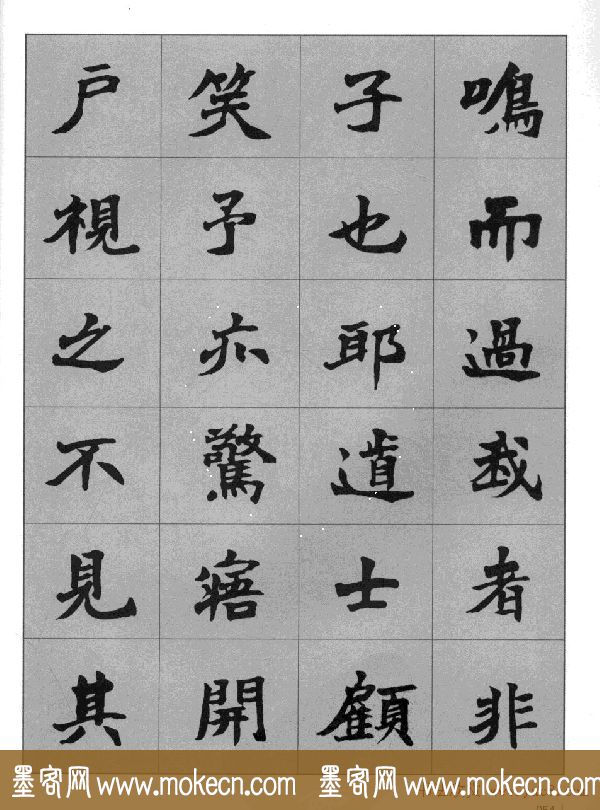 鳴而過我者非
子也耶道士顧
笑予亦驚寤開
戶視之不見其
墨客网 www.mokecn.com 墨客网 www.mokecn.com